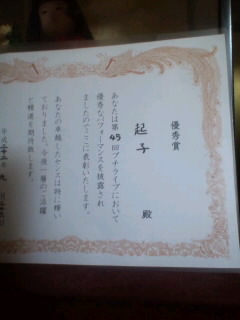 優秀賞
起子 殿
あなたは第45回プチライブにおいて
優秀なパフォーマンスを披露され
ましたのでここに表彰いたします。
あなたの卓越したセンスは特に輝い
ておりました。今後一層のご活躍
ご精進を期待致します。
平成二十二年九月